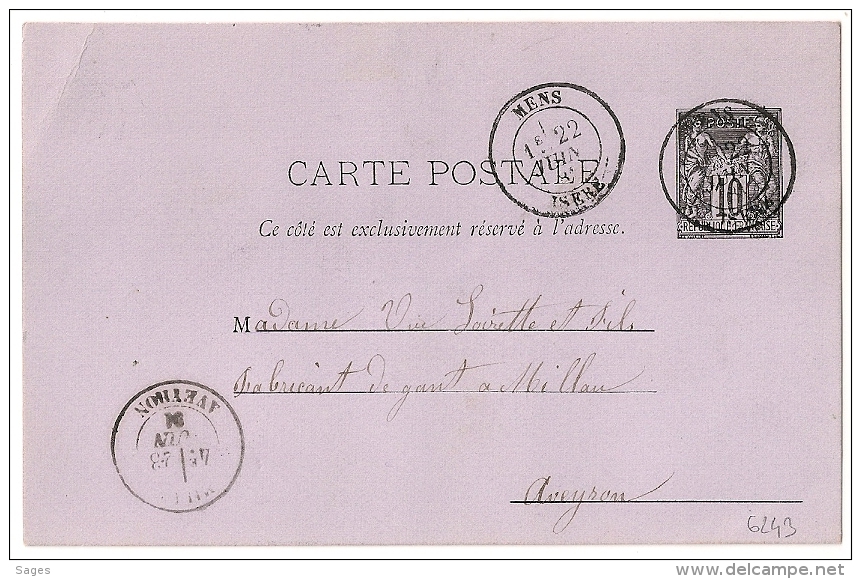 MENS
1E 22
JUIN
ISERE
POSTES
10
REPUBLIQUE FRANCAISE
CARTE POSTALE
Ce côté est exclusivement réservé à l'adresse.
Madame Vve Loirette et Fils
Fabricant de gant a Millau
Aveyron
AVEYRON
23
JUIN
6243
Sages
www.delcampe.net